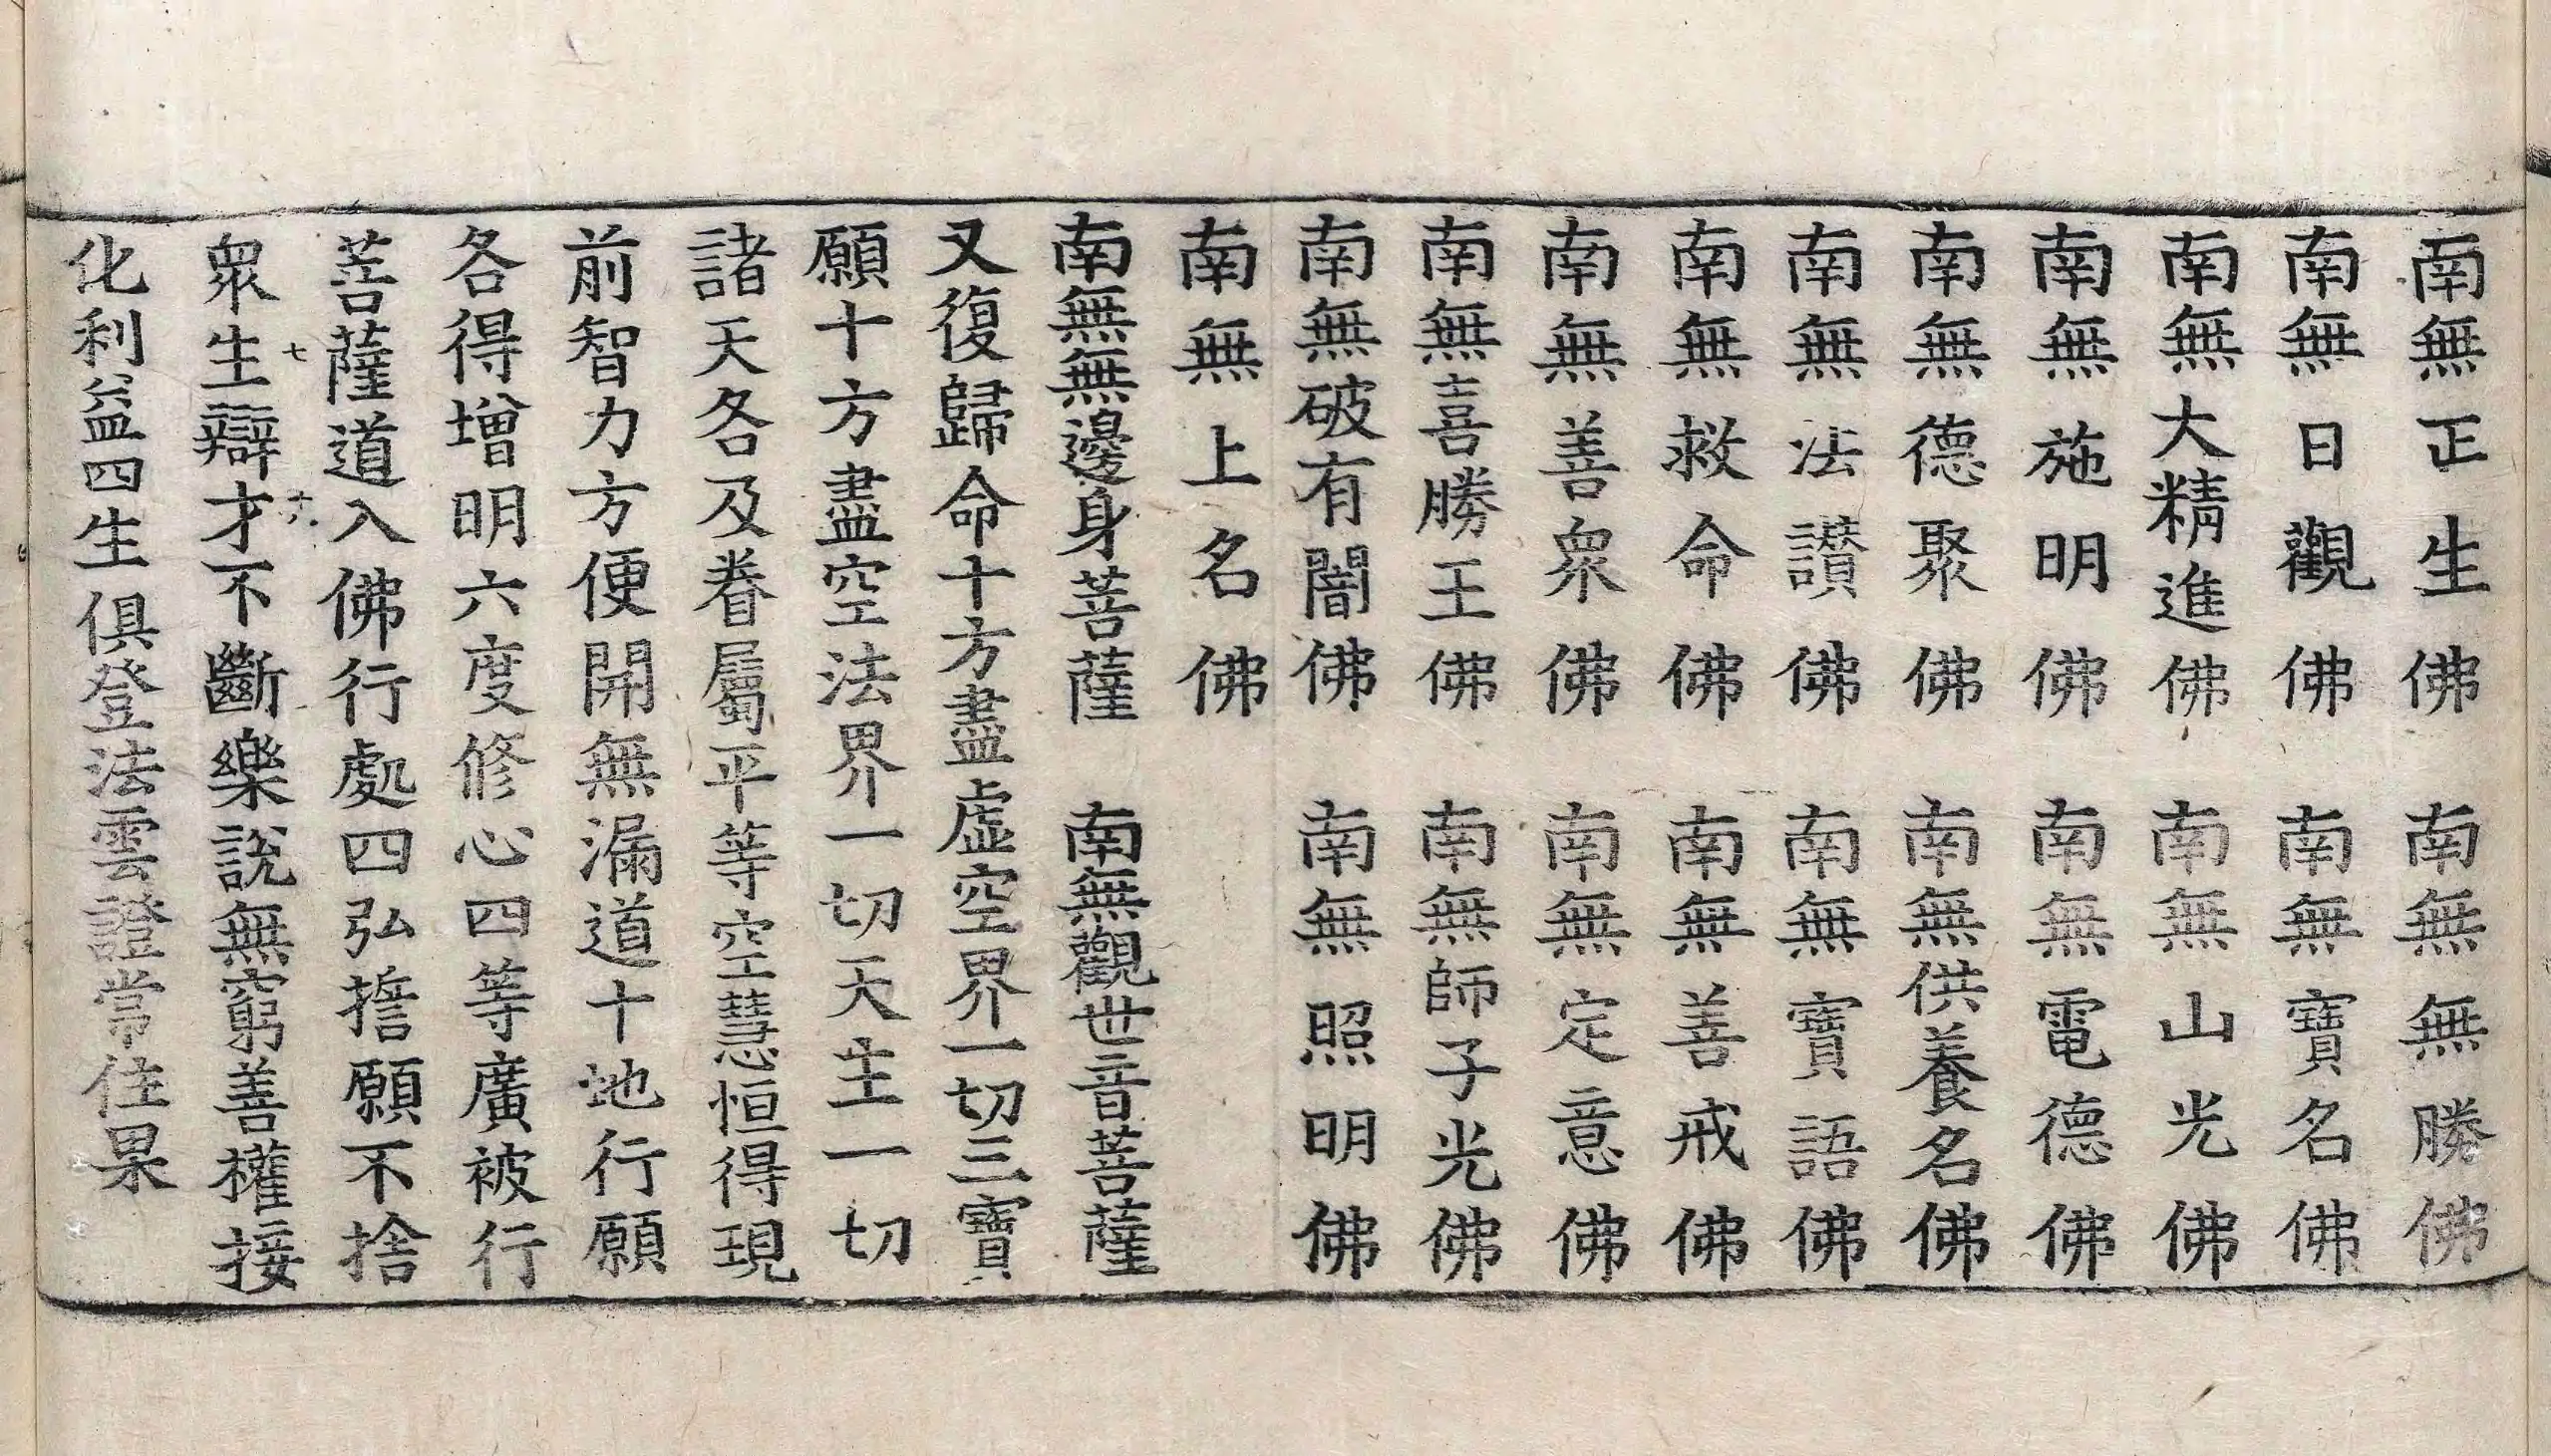 南無正生佛　南無無勝佛
南無日觀佛　南無寶名佛
南無大精進佛　南無山光佛
南無施明佛　南無電德佛
南無德聚佛　南無供養名佛
南無法讚佛　南無寶語佛
南無救命佛　南無善戒佛
南無善衆佛　南無定意佛
南無喜勝王佛　南無師子光佛
南無破有闇佛　南無照明佛
南無上名佛
南無無邊身菩薩　南無觀世音菩薩
又復歸命十方盡虛空界一切三寶
願十方盡空法界一切天主一切
諸天各及眷屬平等空慧恒得現
前智力方便開無漏道十地行願
各得增明六度修心四等廣被行
菩薩道入佛行處四弘誓願不捨
衆生辯才不斷樂說無窮善權接
七　十六
化利益四生俱登法雲證常住果